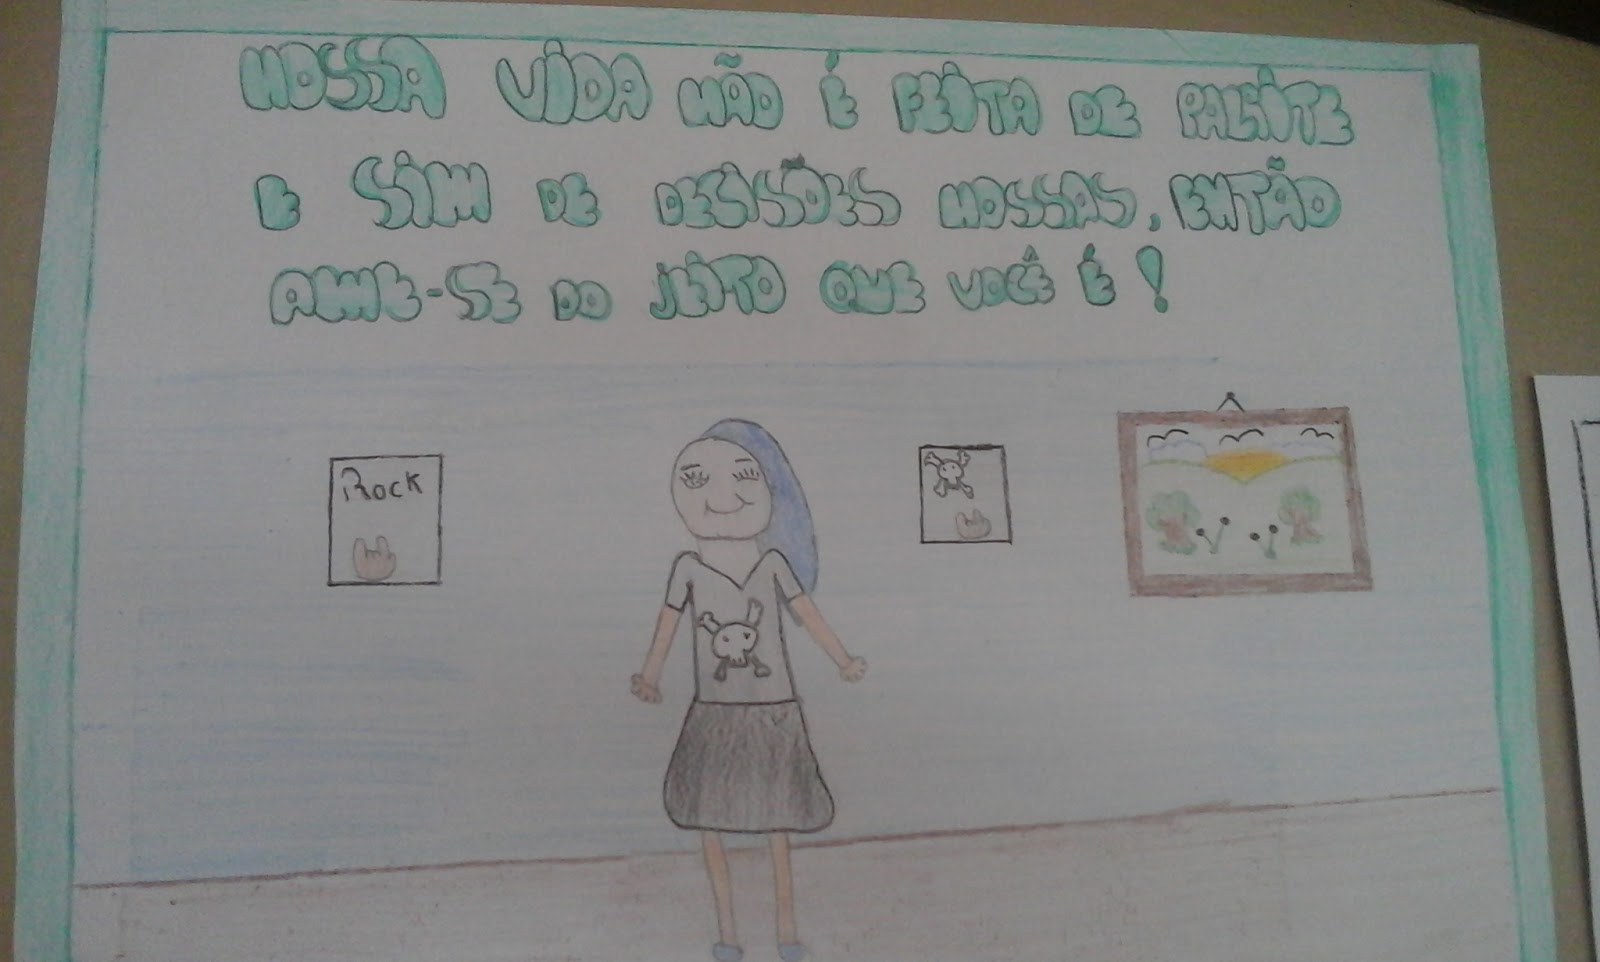 NOSSA VIDA NÃO É FEITA DE PALITE
E SIM DE DESISÕES NOSSAS, ENTÃO
AME-SE DO JEITO QUE VOCÊ É!
Rock